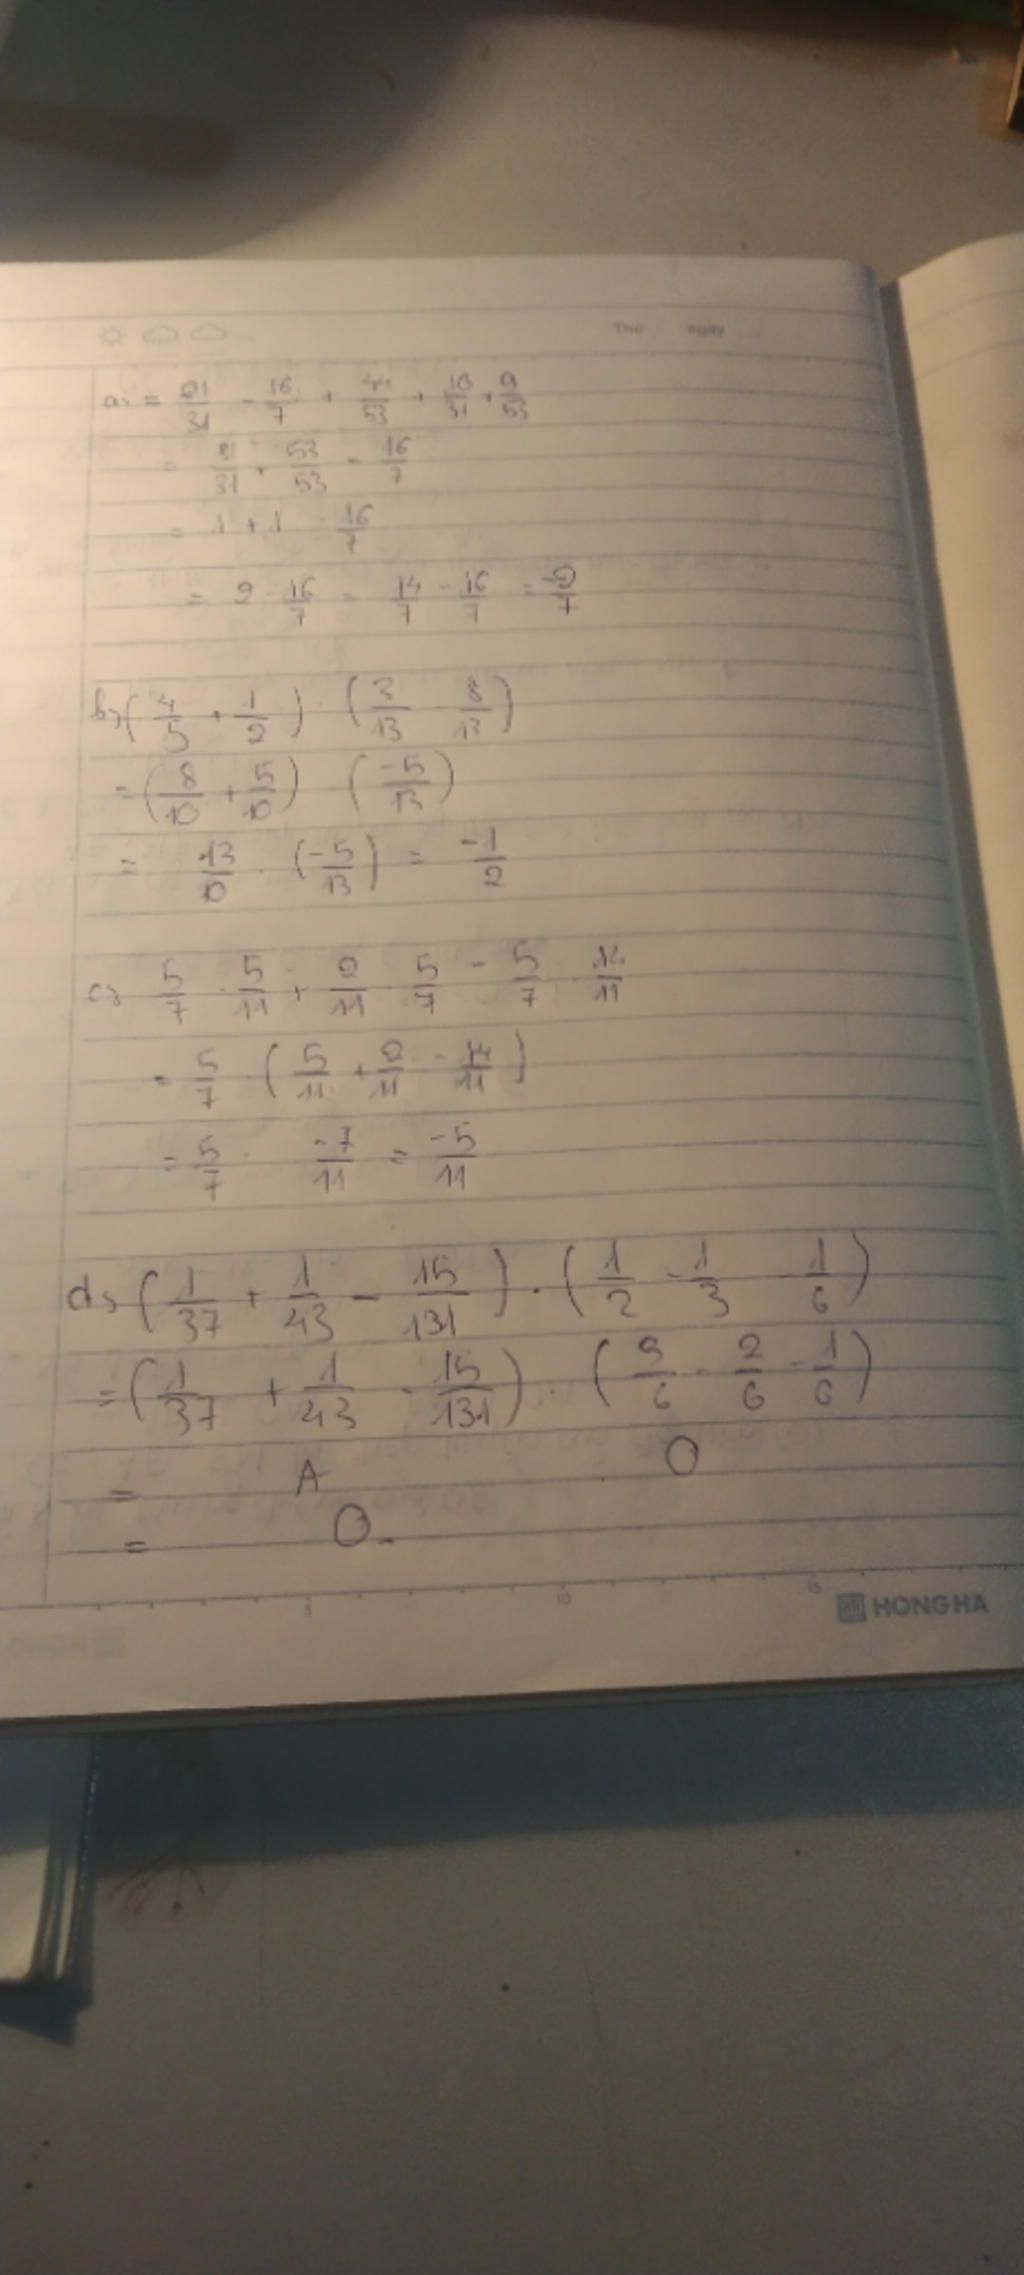 Thứ ngày
a, = 21/31 - 16/7 + 44/53 + 10/31 + 9/53
= 31/31 + 53/53 - 16/7
= 1 + 1 - 16/7
= 2 - 16/7 = 14/7 - 16/7 = -2/7
b, (4/5 + 1/2) . (3/13 - 8/13)
= (8/10 + 5/10) (-5/13)
= 13/10 . (-5/13) = -1/2
c, 5/7 . 5/11 + 2/11 . 5/7 - 5/7 . 14/11
= 5/7 (5/11 + 2/11 - 14/11)
= 5/7 . -7/11 = -5/11
d, (1/37 + 1/43 - 15/131) . (1/2 - 1/3 - 1/6)
= (1/37 + 1/43 - 15/131) . (3/6 - 2/6 - 1/6)
= A . 0
= 0
5 10 15
HONG HA